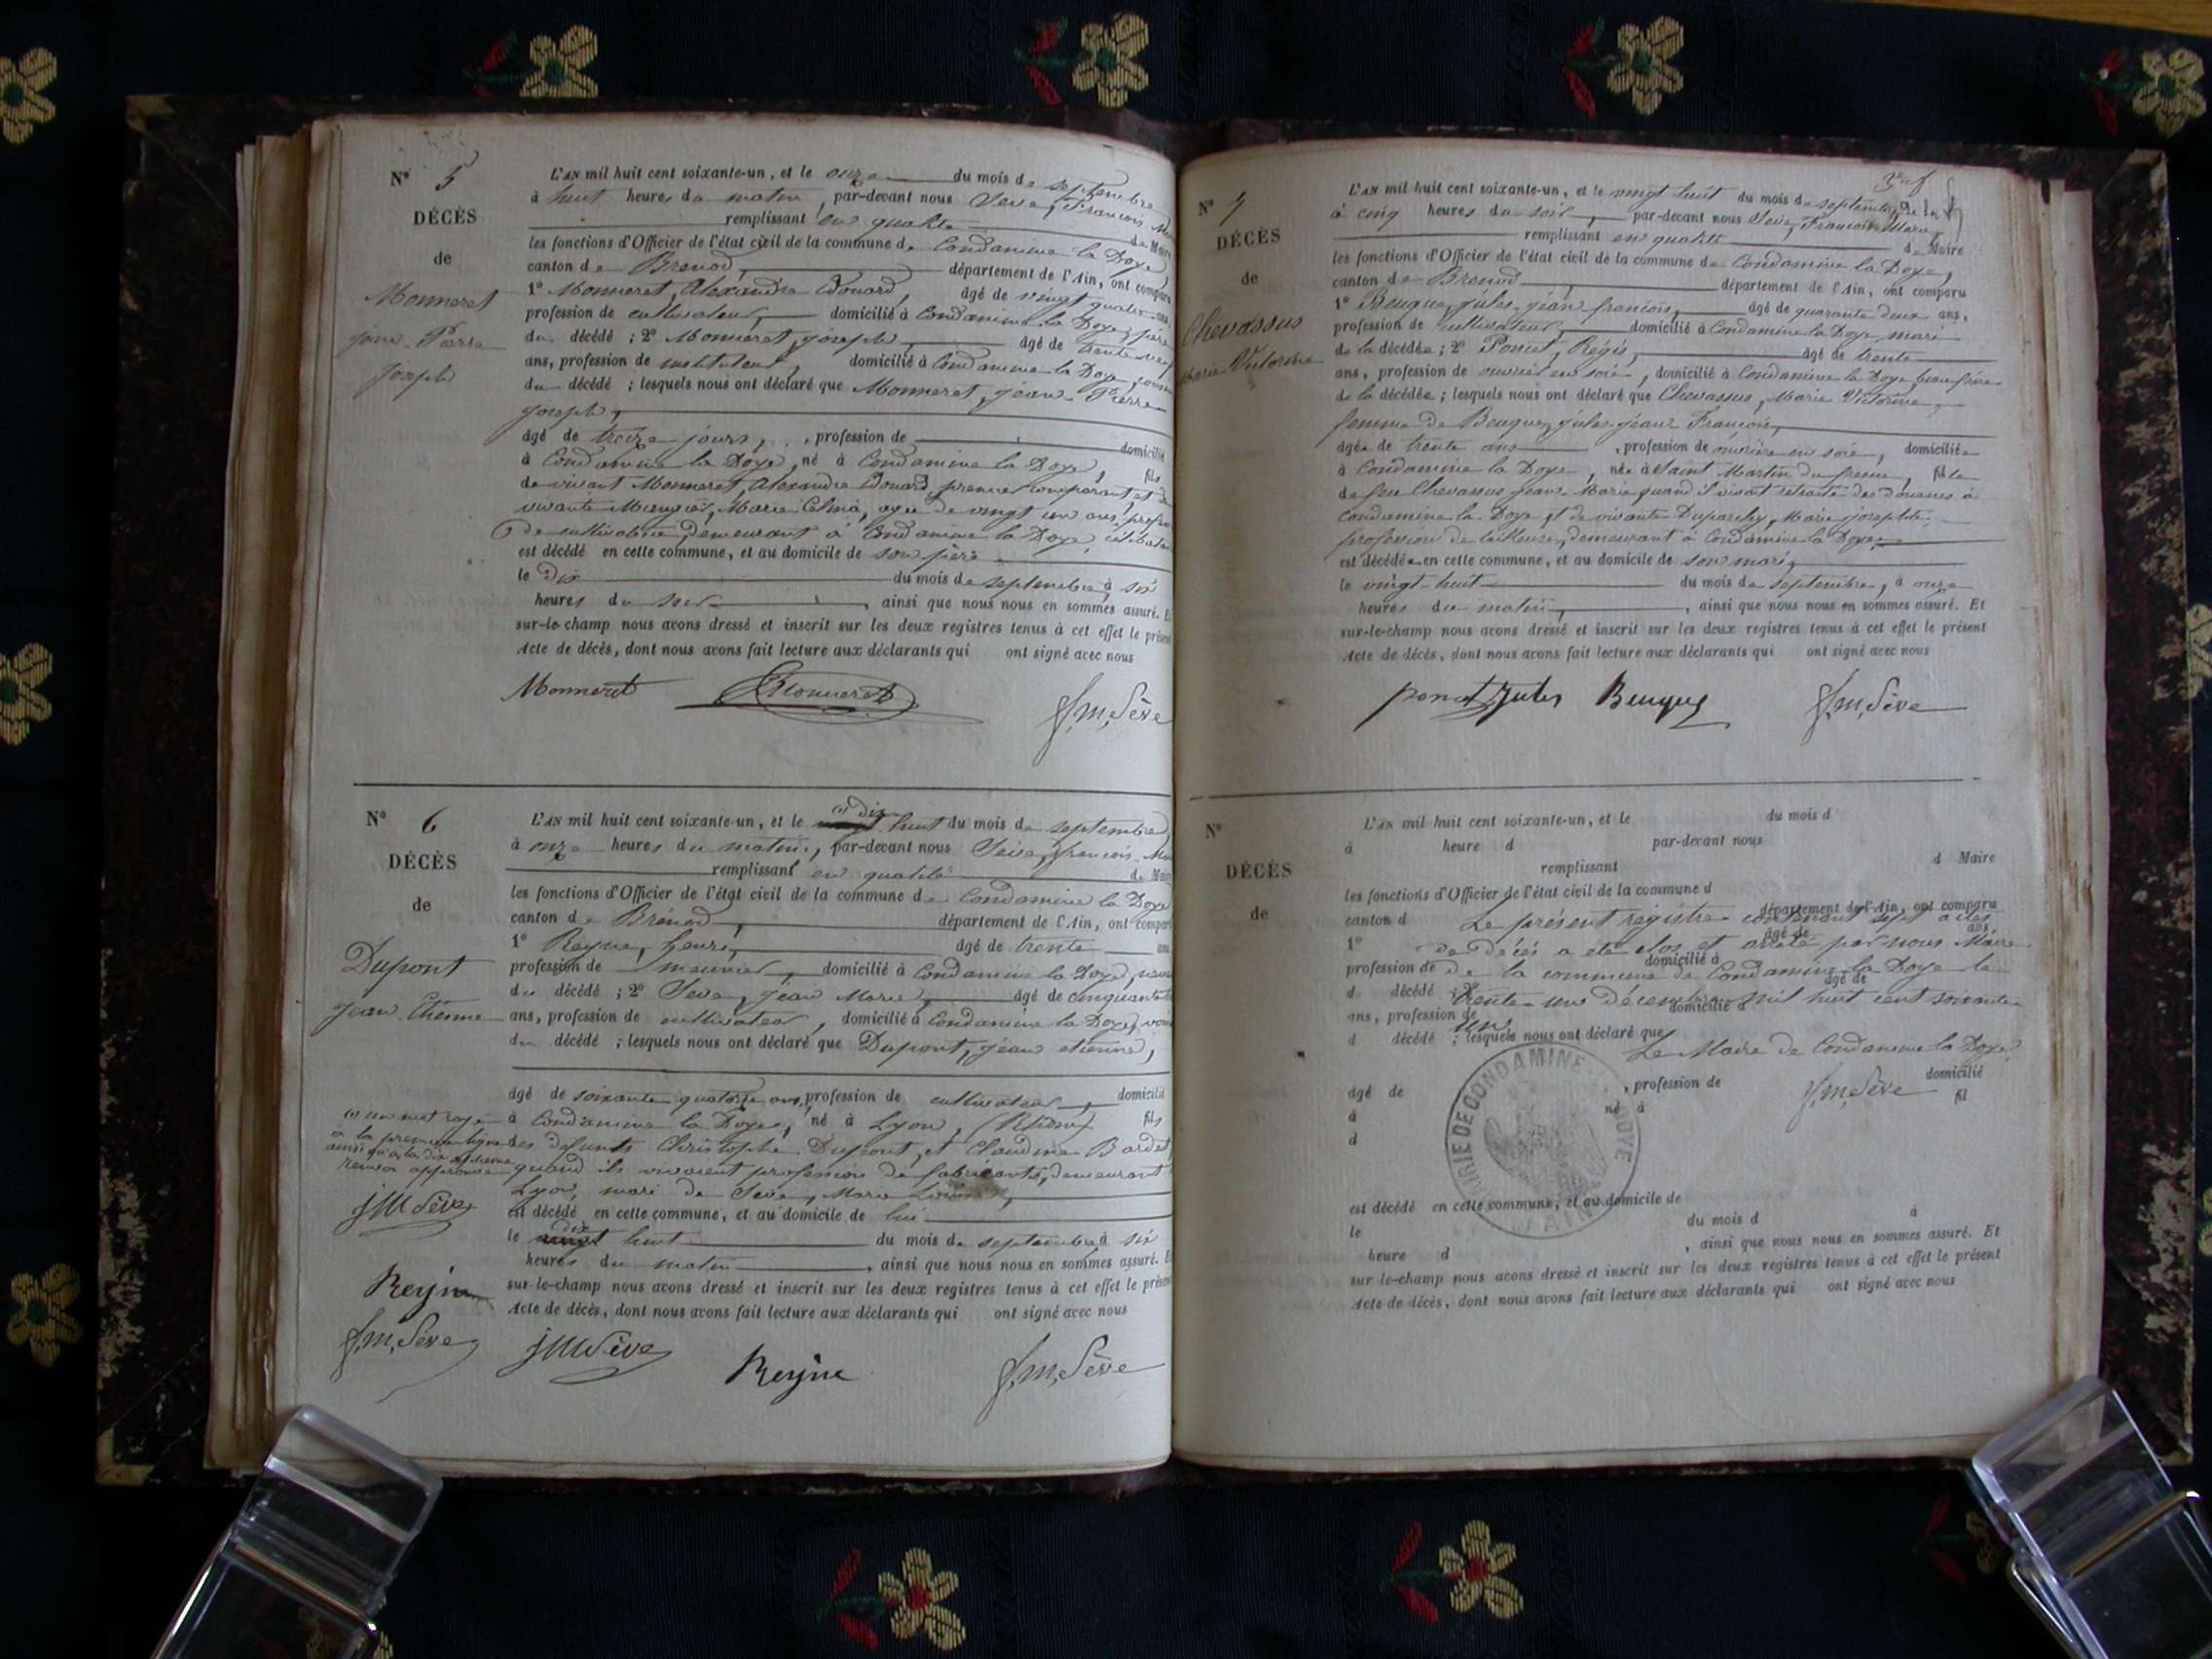 N° 5
DÉCÈS
de
Monneret
jean Pierre
Joseph
L'AN mil huit cent soixante-un, et le onze du mois de septembre
à huit heures du matin, par-devant nous Sève, François
remplissant en qualité de Maire
les fonctions d'Officier de l'état civil de la commune de Condamine la Doye,
canton de Brenod, département de l'Ain, ont comparu
1° Monneret, Alexandre Edouard, âgé de vingt quatre ans,
profession de cultivateur, domicilié à Condamine la Doye, père
du décédé ; 2° Monneret, joseph, âgé de trente
ans, profession de instituteur, domicilié à Condamine la Doye,
du décédé ; lesquels nous ont déclaré que Monneret, jean Pierre
joseph,
âgé de treize jours, profession de domicilié
à Condamine la Doye, né à Condamine la Doye, fils
de vivant Monneret, Alexandre Edouard, premier comparant, et de
vivante Marie Célina, agée de vingt un ans,
de cultivatrice, demeurant à Condamine la Doye,
est décédé en cette commune, et au domicile de son père
le dix du mois de septembre, à six
heures du soir, ainsi que nous nous en sommes assuré. Et
sur-le-champ nous avons dressé et inscrit sur les deux registres tenus à cet effet le présent
Acte de décès, dont nous avons fait lecture aux déclarants qui ont signé avec nous
Monneret Monneret f,m, Sève
N° 6
DÉCÈS
de
Dupont
Jean Etienne
L'AN mil huit cent soixante-un, et le (1) dix huit du mois de septembre,
à onze heures du matin, par-devant nous Sève, françois
remplissant en qualité de Maire
les fonctions d'Officier de l'état civil de la commune de Condamine la Doye
canton de Brénod, département de l'Ain, ont comparu
1° Reyne, henri, âgé de trente ans
profession de meunier, domicilié à Condamine la Doye,
du décédé ; 2° Sève, jean Marie, âgé de cinquante
ans, profession de cultivateur, domicilié à Condamine la Doye,
du décédé ; lesquels nous ont déclaré que Dupont, jean etienne,
âgé de soixante quatorze ans, profession de cultivateur, domicilié
à Condamine la Doye, né à Lyon, (Rhône) fils
des défunts Christophe Dupont, et Claudine Bardet,
quand ils vivaient profession de fabricants, demeurant
Lyon, mari de Sève, Marie
est décédé en cette commune, et au domicile de lui
le dix huit du mois de septembre à six
heures du matin, ainsi que nous nous en sommes assuré. Et
sur-le-champ nous avons dressé et inscrit sur les deux registres tenus à cet effet le présent
Acte de décès, dont nous avons fait lecture aux déclarants qui ont signé avec nous
(1) un mot rayé
à la première ligne
renvoi approuvé
jM Sève
Reyne
f,m, Sève
jM Sève Reyne f,m, Sève
N° 7
DÉCÈS
de
Chevassus
Marie Victorine
L'AN mil huit cent soixante-un, et le vingt huit du mois de septembre
à cinq heures du soir, par-devant nous Sève, François Marie
remplissant en qualité de Maire
les fonctions d'Officier de l'état civil de la commune de Condamine la Doye,
canton de Brenod, département de l'Ain, ont comparu
1° Beuque, jules jean françois, âgé de quarante deux ans,
profession de cultivateur, domicilié à Condamine la Doye mari
de la décédée ; 2° Poncet, Régis, âgé de trente
ans, profession de ouvrier en soie, domicilié à Condamine la Doye, beau frère
de la décédée ; lesquels nous ont déclaré que Chevassus, Marie Victorine,
femme de Beuque, jules jean François,
âgée de trente ans, profession de ouvrière en soie, domiciliée
à Condamine la Doye, née à Saint Martin du frêne, fille
de feu Chevassus jean Marie quand il vivait retraité des douanes à
Condamine la Doye et de vivante Marie josephte
profession de tailleuse, demeurant à Condamine la Doye,
est décédée en cette commune, et au domicile de son mari,
le vingt huit du mois de septembre, à onze
heures du matin, ainsi que nous nous en sommes assuré. Et
sur-le-champ nous avons dressé et inscrit sur les deux registres tenus à cet effet le présent
Acte de décès, dont nous avons fait lecture aux déclarants qui ont signé avec nous
poncet Jules Beuque f,m, Sève
N°
DÉCÈS
de
L'AN mil huit cent soixante-un, et le du mois d
à heure d par-devant nous
remplissant d Maire
les fonctions d'Officier de l'état civil de la commune d
canton d département de l'Ain, ont comparu
Le présent registre contenant sept actes
1° âgé de ans,
de décès a été clos et arrêté par nous Maire
profession de domicilié à
de la commune de Condamine la Doye le
d décédé ; 2° âgé de
trente un Décembre mil huit cent soixante
ans, profession de domicilié à
un
d décédé ; lesquels nous ont déclaré que
Le Maire de Condamine la Doye
f,m, Sève
âgé de , profession de domicilié
à né à fil
d
MAIRIE DE CONDAMINE LA DOYE
AIN
est décédé en cette commune, et au domicile de
le du mois d à
heure d , ainsi que nous nous en sommes assuré. Et
sur-le-champ nous avons dressé et inscrit sur les deux registres tenus à cet effet le présent
Acte de décès, dont nous avons fait lecture aux déclarants qui ont signé avec nous